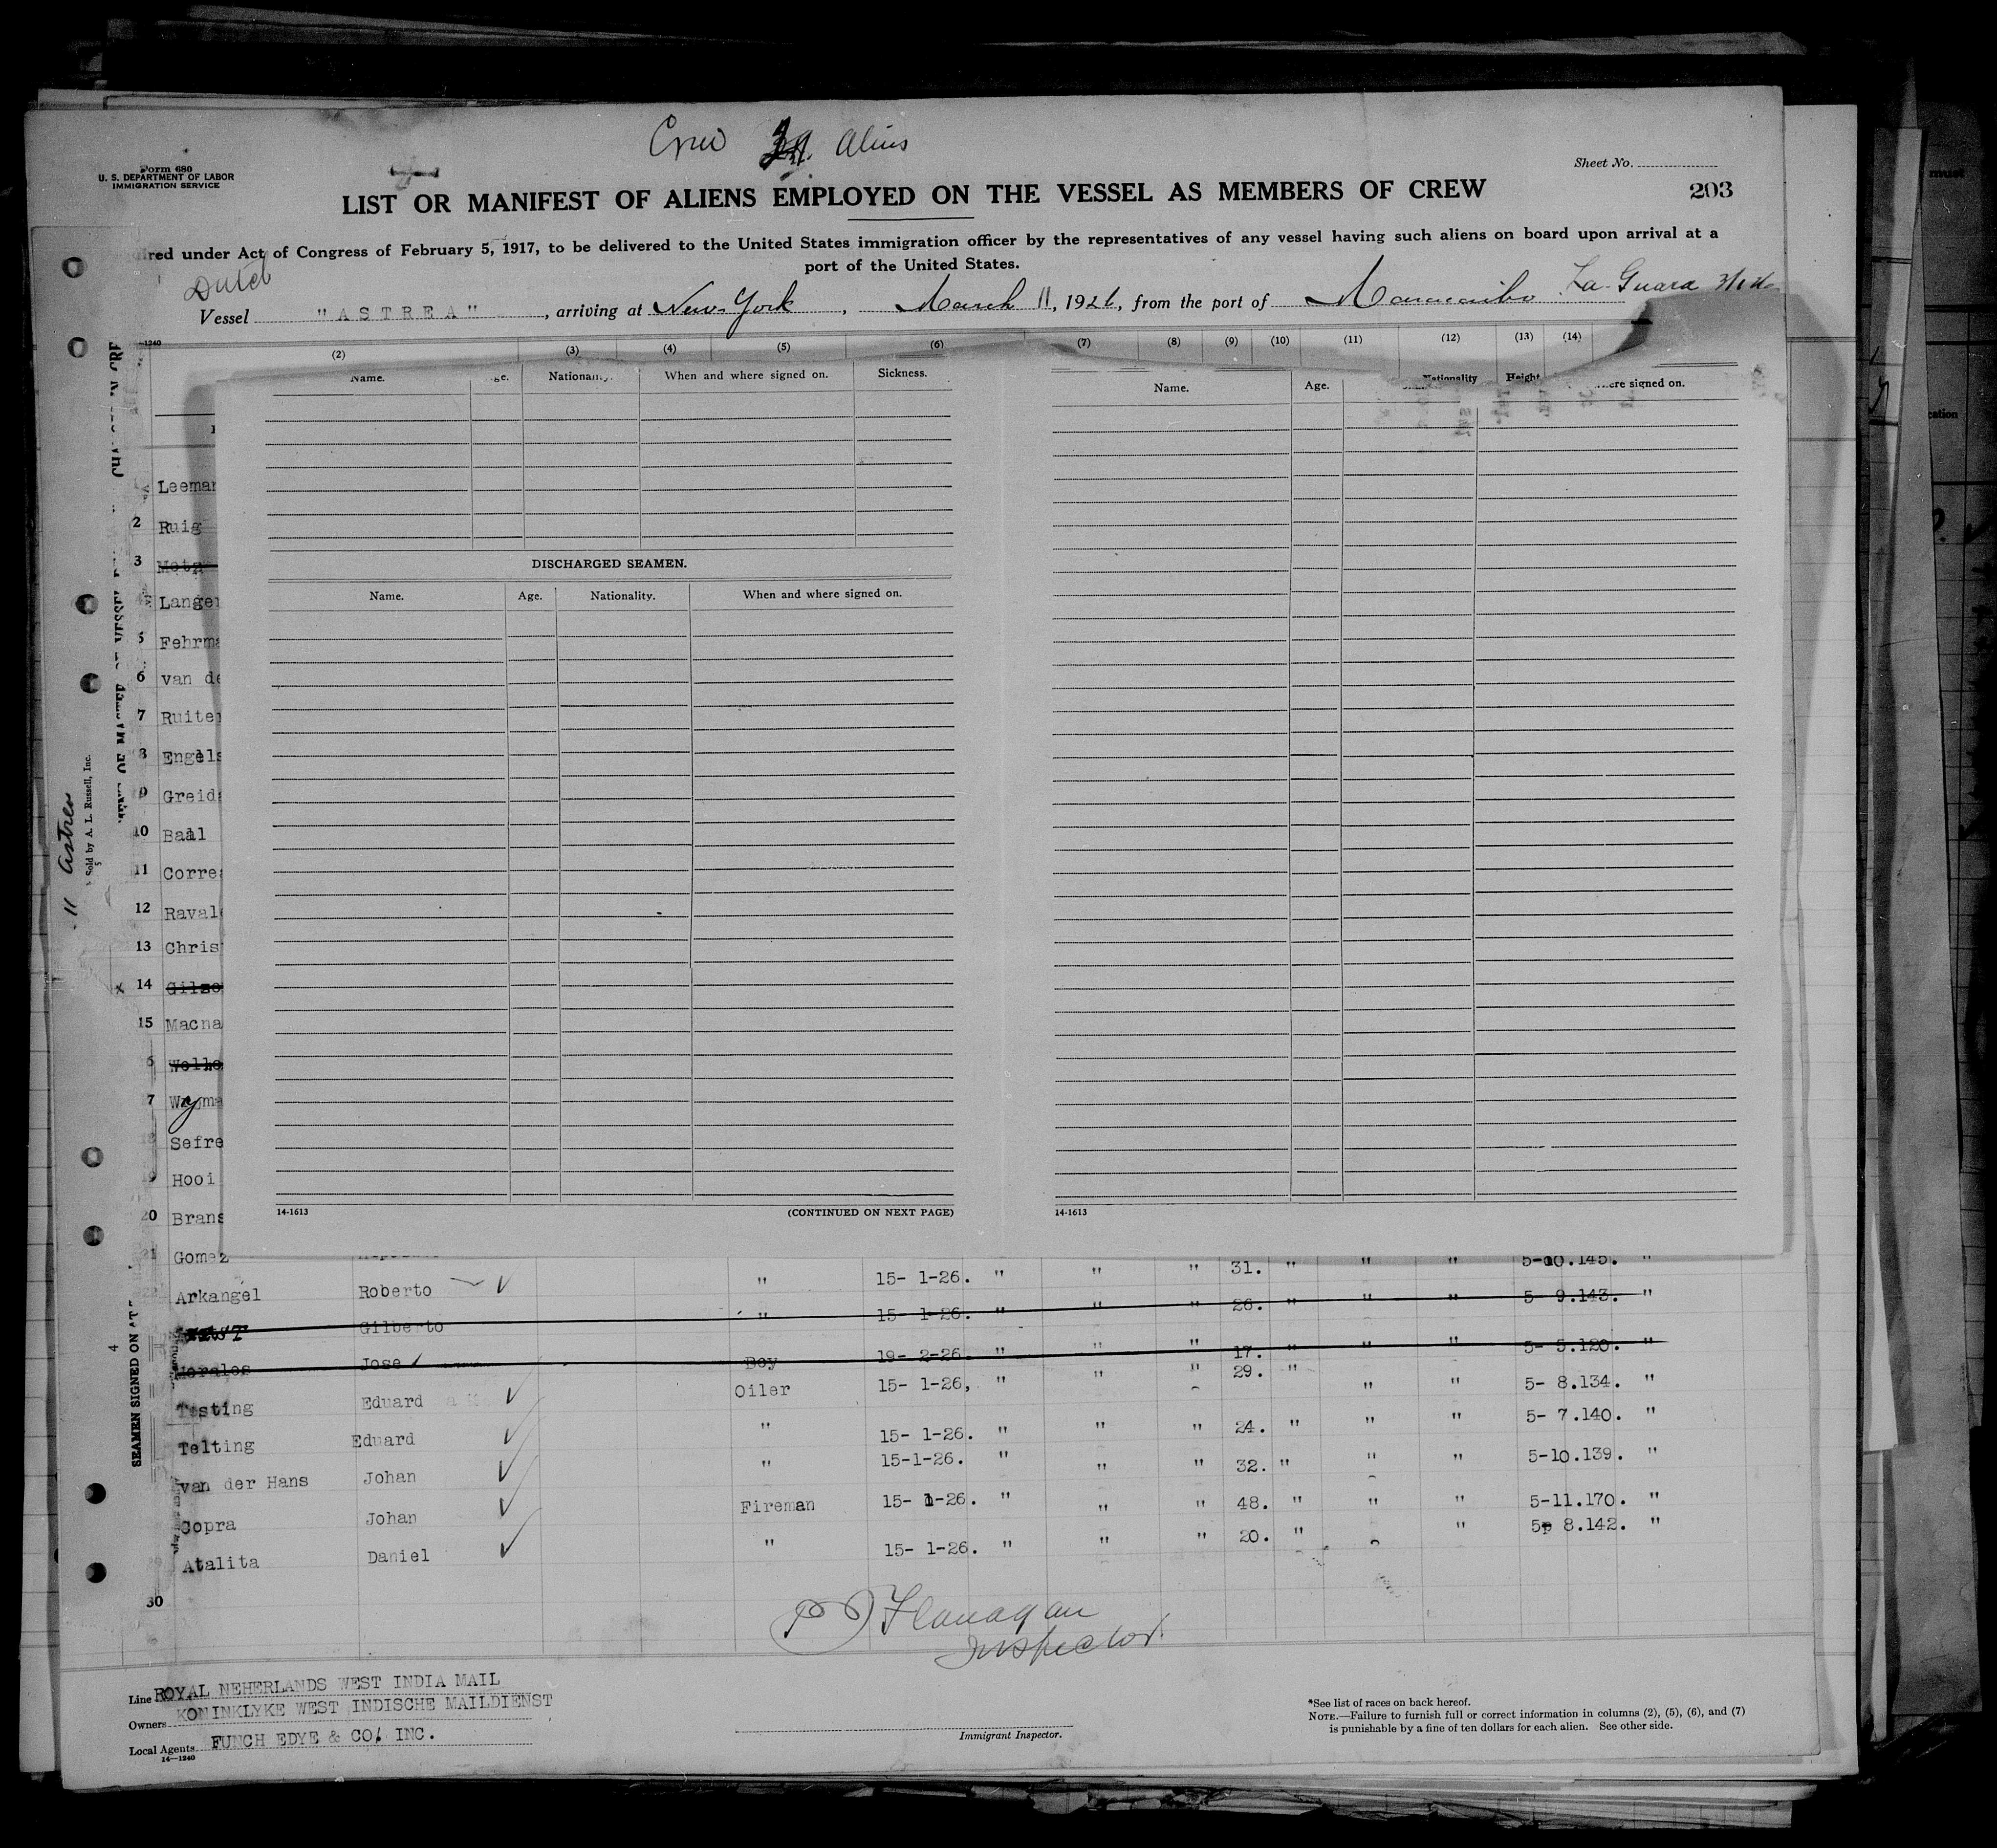 Crew Aliens
Form 680
U. S. DEPARTMENT OF LABOR
IMMIGRATION SERVICE
Sheet No.
203
LIST OR MANIFEST OF ALIENS EMPLOYED ON THE VESSEL AS MEMBERS OF CREW
ired under Act of Congress of February 5, 1917, to be delivered to the United States immigration officer by the representatives of any vessel having such aliens on board upon arrival at a
port of the United States.
Dutch
Vessel "ASTREA", arriving at New York, March 11, 1926, from the port of Maracaibo La Guara
(2) (3) (4) (5) (6) (7) (8) (9) (10) (11) (12) (13) (14)
Name. Nationality. When and where signed on. Sickness.
Name. Age. Nationality Height ere signed on.
Leeman
2 Ruig
3
Langer
5 Fehrma
6 van de
7 Ruiter
8 Engels
9 Greida
10 Baal
11 Correa
12 Ravale
13 Chris
14 Gilso
15 Macna
6
7 Wyma
Sefre
19 Hooi
20 Brans
21 Gomez
DISCHARGED SEAMEN.
Name. Age. Nationality. When and where signed on.
14-1613
(CONTINUED ON NEXT PAGE)
14-1613
5-10.145. "
Arkangel Roberto " 15- 1-26. " " " 31. " " "
Gilberto " 15- 1-26. " " " 26. " " " 5- 9.143. "
Morales Jose Boy 19- 2-26. " " " 17. " " " 5- 5.120. "
Testing Eduard Oiler 15- 1-26, " " " 29. " " " 5- 8.134. "
Telting Eduard " 15- 1-26. " " " 24. " " " 5- 7.140. "
van der Hans Johan " 15-1-26. " " " 32. " " " 5-10.139. "
Copra Johan Fireman 15- 1-26. " " " 48. " " " 5-11.170. "
Atalita Daniel " 15- 1-26. " " " 20. " " 5p 8.142. "
30
P Flanagan
Inspector.
Line ROYAL NEHERLANDS WEST INDIA MAIL
Owners KONINKLYKE WEST INDISCHE MAILDIENST
Local Agents FUNCH EDYE & CO. INC.
14-1240
Immigrant Inspector.
*See list of races on back hereof.
NOTE.—Failure to furnish full or correct information in columns (2), (5), (6), and (7)
is punishable by a fine of ten dollars for each alien. See other side.
11 Astrea
Sold by A. L. Russell, Inc.
SEAMEN SIGNED ON AT
4
must